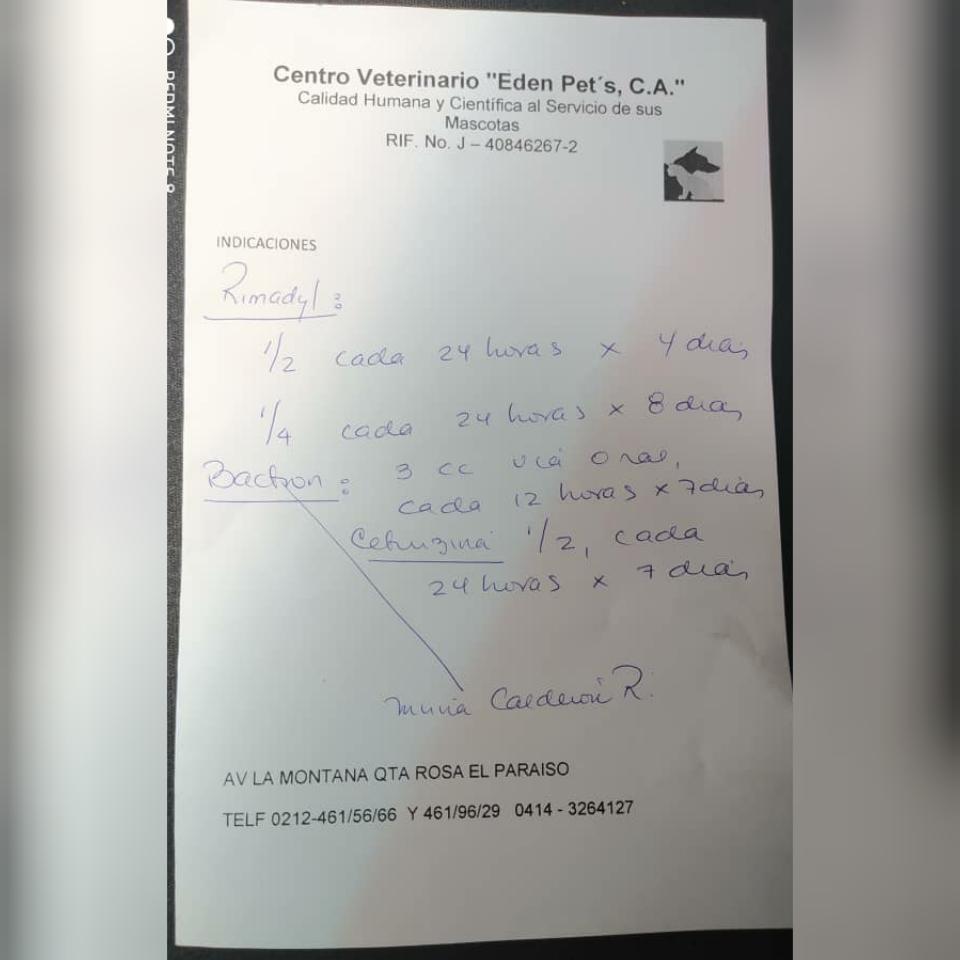 REDMI NOTE 8
Centro Veterinario "Eden Pet´s, C.A."
Calidad Humana y Científica al Servicio de sus
Mascotas
RIF. No. J – 40846267-2
INDICACIONES
Rimadyl:
1/2 cada 24 horas x 4 dias
1/4 cada 24 horas x 8 dias
Bactron: 3 cc via oral,
cada 12 horas x 7 dias
Cetirizina 1/2, cada
24 horas x 7 dias
Calderon R.
AV LA MONTANA QTA ROSA EL PARAISO
TELF 0212-461/56/66 Y 461/96/29 0414 - 3264127